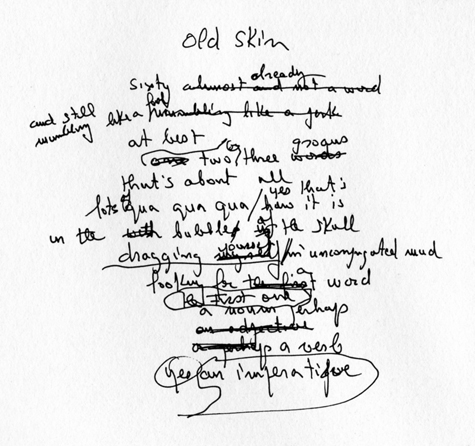 old skin
already
sixty almost and not a word
and still mumbling like a fool mumbling like a
at best
two three words groans
that's about all
yes that's
lots qua qua qua how it is
in the with bubble of the skull
dragging yourself in unconjugated mud
looking for the first a word
the first one
a noun perhaps
an adjective
a perhaps a verb
yes an imperative